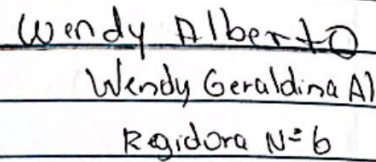 Wendy Alberto
Wendy Geraldina Al
Regidora N= 6